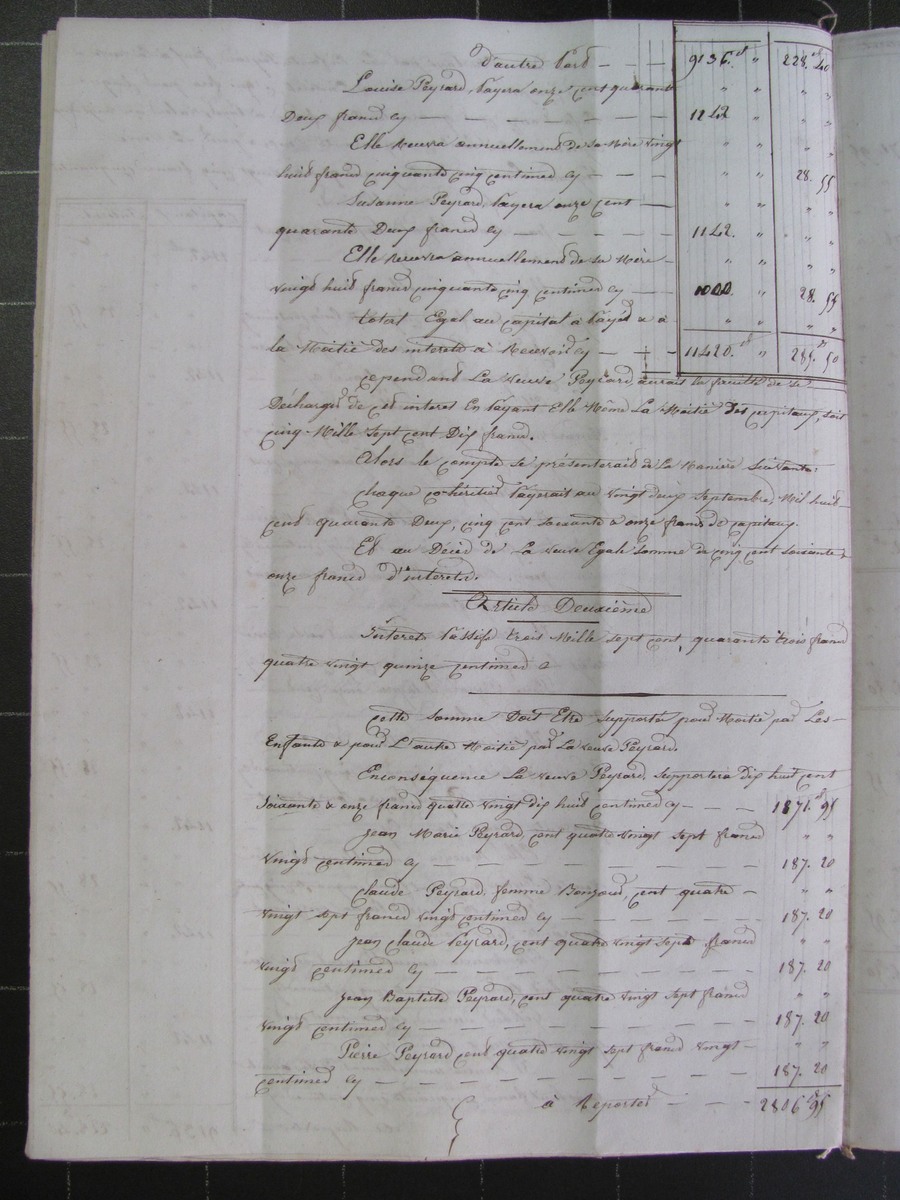 D'autre Part — — 9136.f " 228.f 40
Louise Peyrard, payera onze cent quarante " " " "
Deux francs cy — — — — — — 1142 "
Elle recevra annuellement de sa Mère vingt " " "
huit francs cinquante cinq centimes cy — — — " " 28. 55
Susanne Peyrard, payera onze cent — " " " "
quarante Deux francs cy — — — — 1142. " " "
Elle recevra annuellement de sa Mère — " " " "
vingt huit francs cinquante cinq centimes cy — — " 28. 55
total Egal au capital à payer & à " " " "
la Moitié des interets à Recevoir cy — — 11420.f " 285.f 50
Cependant La veuve Peyrard aurait la faculté de se
Décharger de cet interet En payant Elle Même La Moitié Des capitaux, soit
cinq Mille Sept cent Dix francs.
Alors le compte se présenterait de La Manière Suivante:
chaque co-héritier payerait au vingt deux Septembre, Mil huit
cent quarante Deux, cinq cent soixante & onze francs de capitaux.
Et au Décès de La veuve Egale Somme de cinq cent soixante &
onze francs d'interets.
Article Deuxième
Interets Passifs trois Mille Sept cent quarante trois francs
quatre vingt quinze centimes
Cette somme Doit Etre Supportée pour Moitié par Les
Enfants & pour L'autre Moitié par La veuve Peyrard.
En conséquence La veuve Peyrard, Supportera Dix huit cent
Soixante & onze francs quatre vingt dix huit centimes cy — — — 1871.f 98
Jean Marie Peyrard, cent quatre vingt sept francs " "
Vingt centimes cy — — — — — — 187. 20
Claude Peyrard, femme Bonzard, cent quatre — " "
vingt sept francs vingt centimes cy — — — — 187. 20
Jean Claude Peyrard, cent quatre vingt sept francs " "
vingt centimes cy — — — — — — 187. 20
Jean Baptiste Peyrard, cent quatre vingt sept francs " "
vingt centimes cy — — — — — — 187. 20
Pierre Peyrard cent quatre vingt sept francs vingt — " "
centimes cy — — — — — — 187. 20
à Reporter — — — 2806.f 98